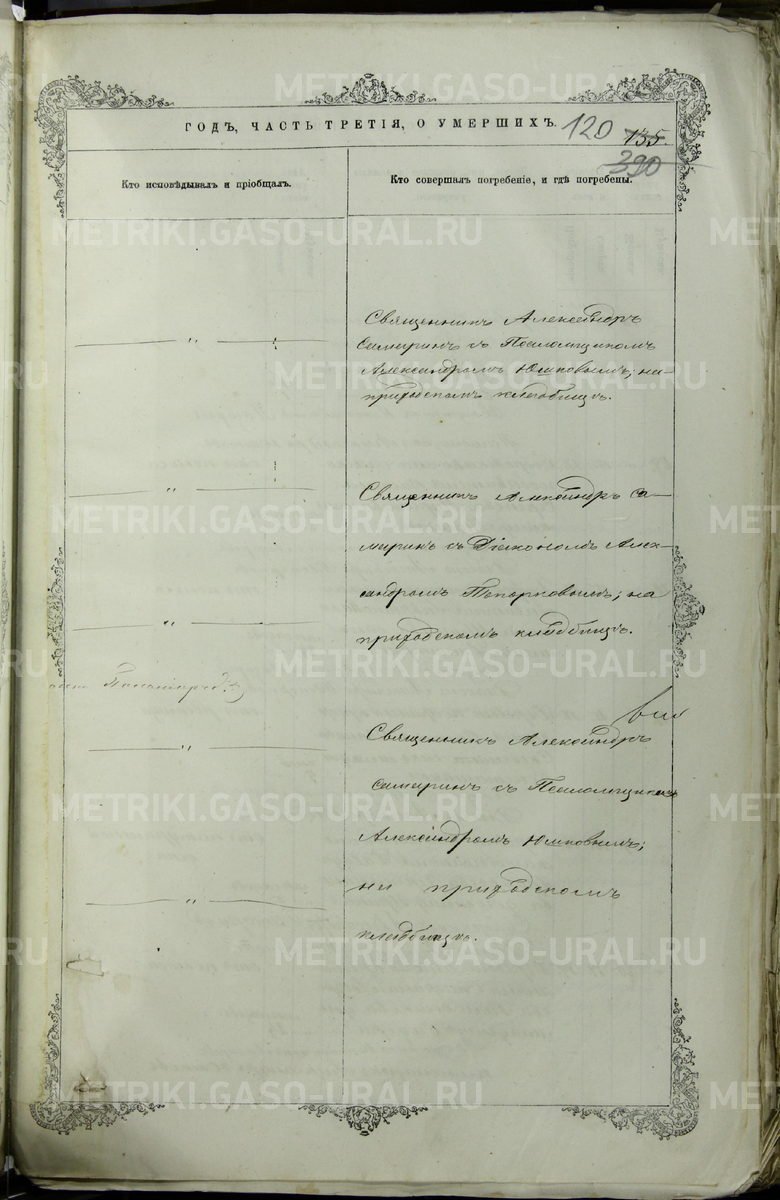 ГОДЪ, ЧАСТЬ ТРЕТІЯ, О УМЕРШИХЪ.
120
135.
390
Кто исповѣдывалъ и пріобщалъ.
Кто совершалъ погребеніе, и гдѣ погребены.
Священникъ Александръ
Самаринъ съ Псаломщикомъ
Александромъ; на
приходскомъ кладбищѣ.
Священникъ Александръ Са-
маринъ съ Діакономъ Алек-
сандромъ Топорковымъ; на
приходскомъ кладбищѣ.
Священникъ Александръ
Самаринъ съ Псаломщикомъ
Александромъ
на приходскомъ
кладбищѣ.
METRIKI.GASO-URAL.RU